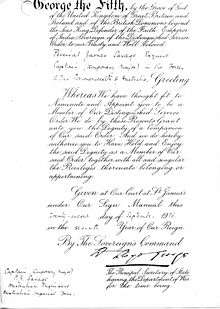 George the Fifth, by the Grace of God
of the United Kingdom of Great Britain and
Ireland and of the British Dominions beyond
the Seas King Defender of the Faith Emperor
of India Sovereign of the Distinguished Service
Order to our Trusty and Well Beloved
James
Captain Temporary Major in
of the Commonwealth of Australia, Greeting
Whereas We have thought fit to
Nominate and Appoint you to be a
Member of Our Distinguished Service
Order We do by these Presents Grant
unto you the Dignity of a Companion
of Our said Order And we do hereby
authorize you to Have Hold and Enjoy
the said Dignity as a Member of Our
said Order, together with all and singular
the Privileges thereunto belonging or
appertaining.
Given at Our Court at St. James's
under Our Sign Manual this
day of September 1916
in the Seventh Year of Our Reign
By The Sovereign's Command
The Principal Secretary of State
having the Department of War
for the time being
Captain
Australian Engineers
Australian Imperial Force